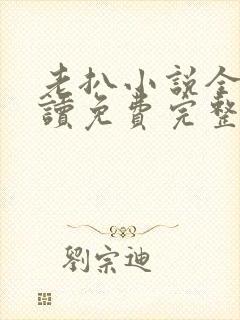 老扒小説全
讀免費完整
劉宗迪